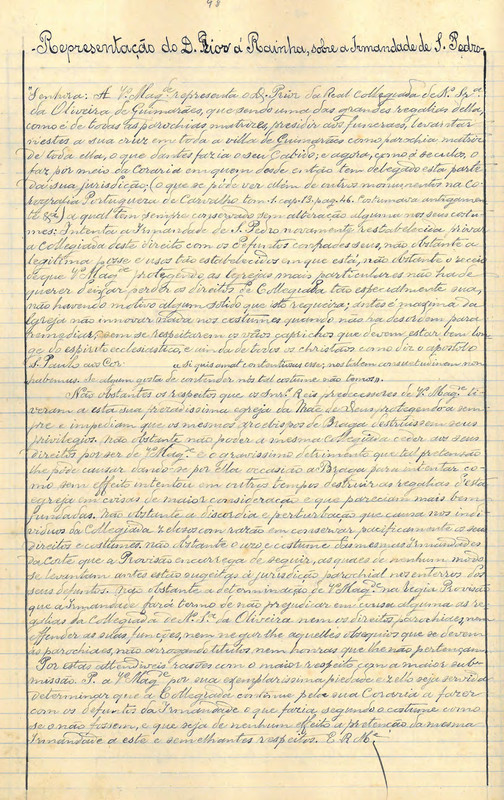 98
Representação do D. Prior á Rainha, sobre a Irmandade de S. Pedro
"Senhora: A Vª Magde representa o D. Prior da Real Collegiada de Nª Srª
da Oliveira de Guimarães, que sendo uma das grandes regalias della,
como é de todas as parochias matrizes, presidir aos funeraes, levantar
nestes a sua cruz em toda a villa de Guimarães como parochia matriz
de toda ella, o que dantes fazia o seu Cabido; e agora, como ha seculos, o
faz por meio da Coraria em quem desde então tem delegado esta parte
da sua jurisdição; (o que se pode ver alem de outros monumentos na Co-
rografia Portugueza de Carvalho tom. 1. cap. 13. pag. 46. Costumava antigamen-
te &ª) a qual tem sempre conservado sem alteração alguma nos seus costu-
mes: Intenta a Irmandade de S. Pedro novamente restabelecida privar
a Collegiada deste direito com os defuntos confrades seus, não obstante a
legitima posse e usos tão estabelecidos em que está, não obstante o receio
de que Vª Magde protegendo as Igrejas mais particulares não ha de
querer deixar perder os direitos da Collegiada tão especialmente sua,
não havendo motivo algum solido que isto requeira; antes é maxima da
Igreja não innovar nada nos costumes quando não ha desordem para
remediar, sem se respeitarem os vãos caprichos que devem estar bem lon-
ge do espirito ecclesiastico, e ainda de todos os christãos como diz o apostolo
S. Paulo aos Cor. « si quis amat contentiosus esse; nos talem consuetudinem non
habemus. Se algum gosta de contender nós tal costume não temos».
Não obstantes os respeitos que os Snrs. Reis predecessores de Vª Magde ti-
veram a esta sua prezadissima egreja da Mãe de Deus, protegendo-a sem-
pre e impediam que os mesmos arcebispos de Braga destruissem seus
privilegios. Não obstante não poder a mesma Collegiada ceder aos seus
direitos por ser de Vª Magde e o gravissimo detrimento que tal pretensão
lhe póde causar dando-se por Ella occasião a Braga para intentar co-
mo sem effeito intentou em outros tempos destruir as regalias d'esta
egreja em coisas de maior consideração e que pareciam mais bem
fundadas. Não obstante a discordia e perturbação que causa nos indi-
viduos da Collegiada zelosos com razão em conservar pacificamente os seus
direitos e costumes. Não obstante o uso e costume das mesmas Irmandades
da Corte que a Provisão encarrega de seguir, as quaes de nenhum modo
se levantam antes estão sugeitas á jurisdição parochial nos enterros dos
seus defuntos. Não obstante a determinação de Vª Magde na Regia Provisão
que a irmandade fará termo de não prejudicar em cousa alguma as re-
galias da Collegiada de Nª Srª da Oliveira nem os direitos parochiaes, nem
offender as suas funcções, nem negar-lhe aquelles obsequios que se devem
ás parochiaes, não arrogando titulos nem honras que lhe não pertençam.
Por estas attendiveis rasões com o maior respeito e com a maior sub-
missão. P. a Vª Magde por sua exemplarissima piedade e zello seja servida
determinar que a Collegiada continue pela sua Coraria a fazer
com os defuntos da Irmandade o que fazia segundo o costume como
se o não fossem, e que seja de nenhum effeito a pretenção da mesma
Irmandade a este e semelhantes respeitos. E. R. Mce